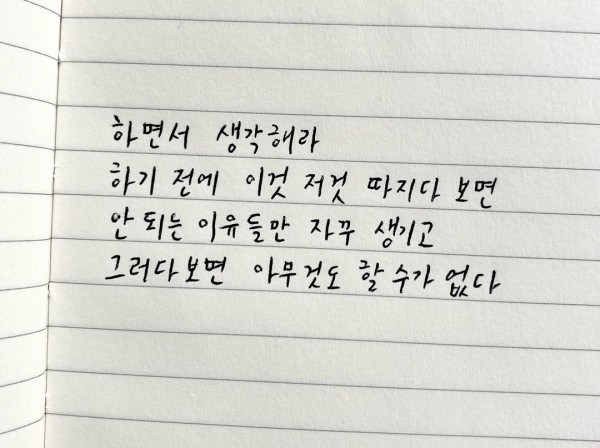 하면서 생각해라
하기 전에 이것 저것 따지다 보면
안 되는 이유들만 자꾸 생기고
그러다보면 아무것도 할 수가 없다